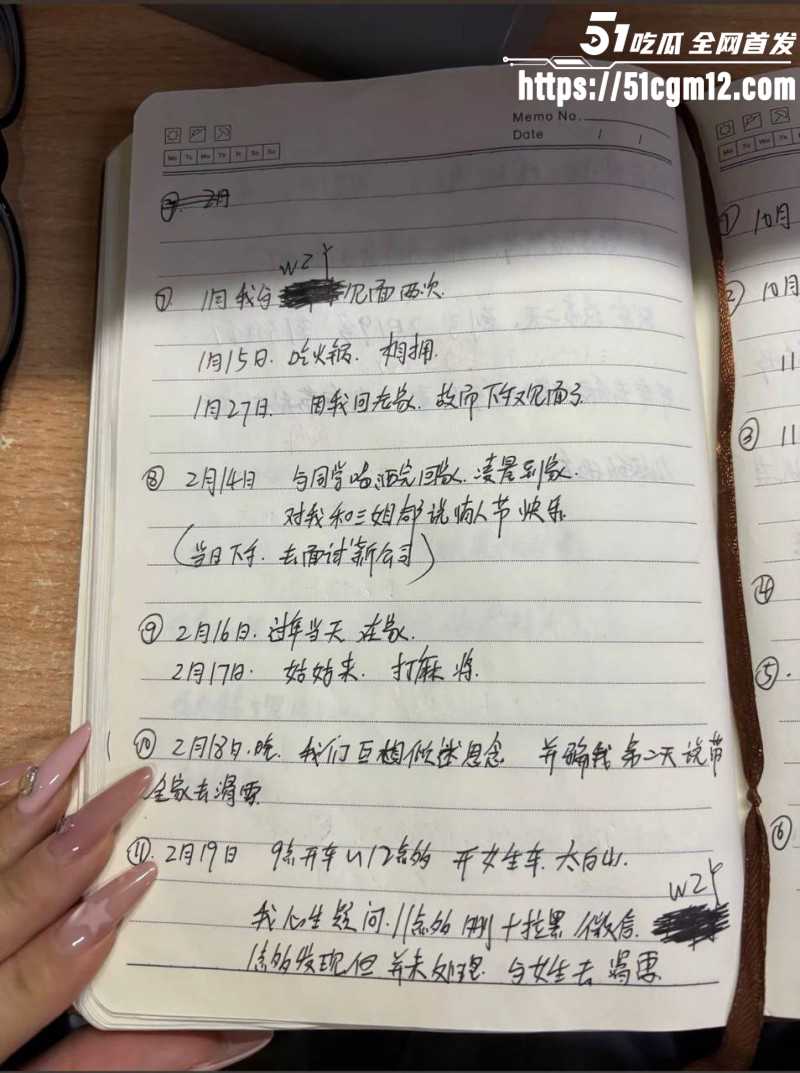 51吃瓜 全网首发
https://51cgm12.com
Memo No.
Date / /
Mo Tu We Th Fr Sa Su
2月
wzy
⑦ 1月我与 见面两次.
1月15日. 吃火锅. 相拥.
1月27日. 因我回老家. 故而下午又见面了
⑧ 2月14日 与同学喝酒完回家. 凌晨到家.
对我和三姐都说情人节快乐
(当日下午. 去面试新公司)
⑨ 2月16日. 过年当天 在家.
2月17日. 姑姑来. 打麻将.
⑩ 2月18日.晚. 我们互相倾述思念 并骗我第二天说带
全家去滑雪
⑪. 2月19日 9点开车 12点多 开女生车. 太白山.
wzy
我心生疑问. 11点多 删+拉黑 微信.
1点多发现但并未处理. 与女生去 滑雪
① 10月
② 10月
11
③ 11
④
⑤.
⑥